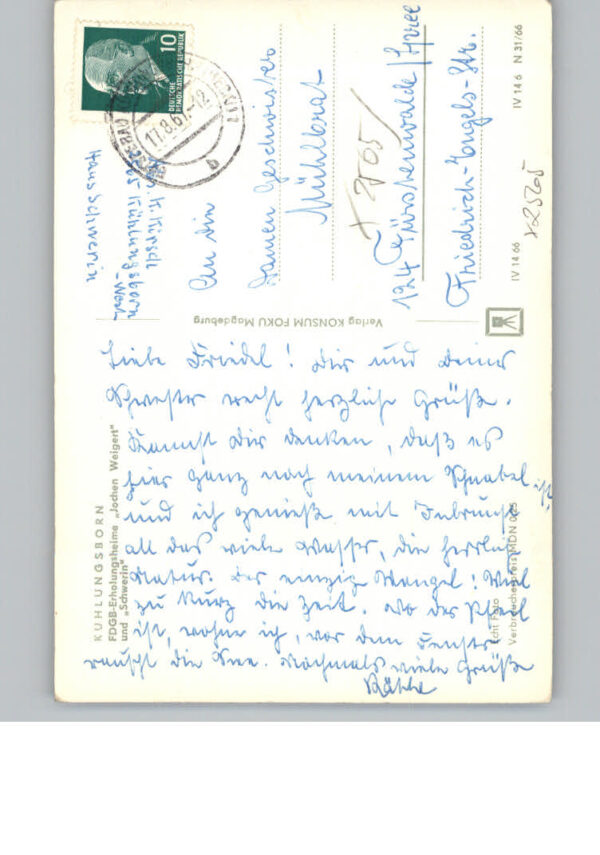 KÜHLUNGSBORN
FDGB-Erholungsheime „Jochen Weigert"
und „Schwerin"
Liebe Friedel! Dir und Deiner
Schwester recht herzliche Grüße.
Kannst Dir denken, daß es
hier ganz nach meinem Schnabel ist,
und ich genieße mit Inbrunst
all das viele Wasser, die herrliche
Natur. Der einzige Mangel: Viel
zu kurz die Zeit. Wo der Pfeil
ist, wohne ich, vor dem Fenster
rauscht die See. Nochmals viele Grüße
Käthe
Echt Foto
Verbraucherpreis MDN 0,25
Verlag KONSUM FOKU Magdeburg
Kühlungsborn
West
Haus Schwerin
10
DEUTSCHE
DEMOKRATISCHE REPUBLIK
17.8.67-12
b
An die
Damen Geschwister
Mühlbrat
124 Fürstenwalde/Spree
Friedrich-Engels-Str.
IV 14 6 N 31/66
IV 14 66